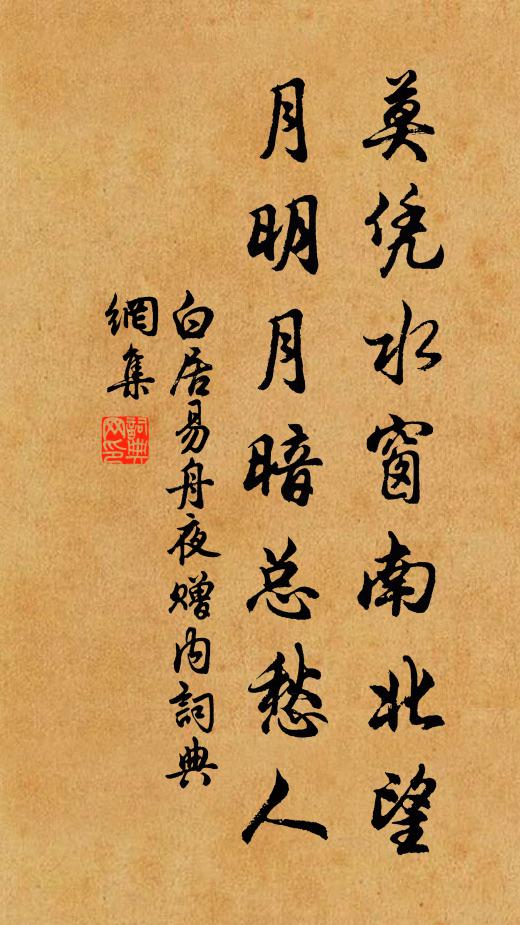 莫凭水窗南北望
月明月暗总愁人
白居易舟夜赠内詞典
網集
詞典
网印